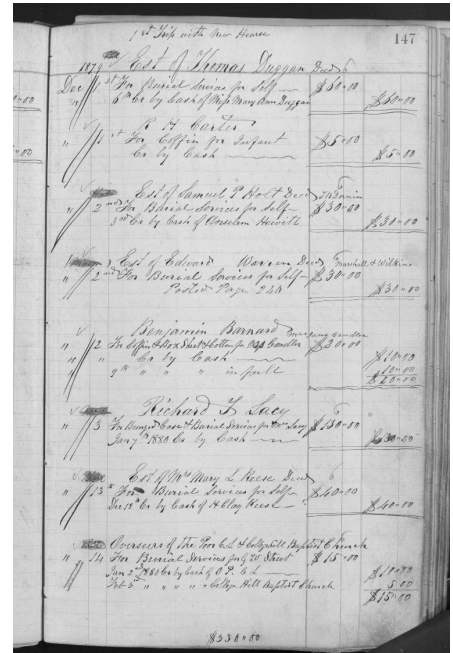 1st Trip with New Hearse
147
1879 Est of Thomas Duggan Decd
Dec 1st For Burial Services for Self $60.00
6th Cr by Cash of Miss Mary Ann Duggan $60.00
R H Carter
" 1st For Coffin for Infant $5.00
Cr by Cash $5.00
Est of Samuel P Holt Decd
" 2nd For Burial Services for Self $30.00
3rd Cr by Cash of Hewitt $30.00
Est of Edward Warren Decd Marshall & Wilkins
" 2nd For Burial Services for Self $30.00
Posted Page 240 $30.00
Benjamin Barnard
" 2 For Coffin & Box Shirt & Cotton for $30.00
" " Cr by Cash $10.00
9th " " " in full 10.00
$20.00
Richard F Lacy
" 3 For Case & Burial Services for Mrs Lacy $130.00
Jany 7th 1880 Cr by Cash $30.00
Est of Mrs Mary L Reese Decd
" 13th For Burial Services for Self $40.00
Dec 13th Cr by Cash of H Clay Reese $40.00
Overseers of the Poor C.L & College Hill Baptist Church
" 14 For Burial Services for Street $15.00
Jan 2nd 1880 Cr by Cash of O P. C L $10.00
Feb 5th " " " " College Hill Baptist Church 5.00
$15.00
$330.00